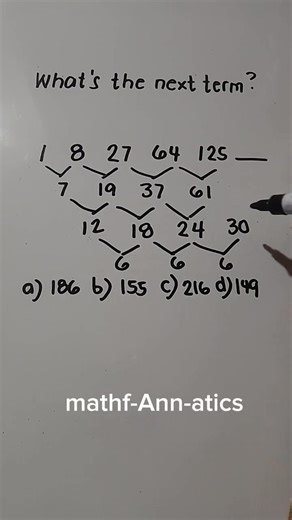 What's the next term?
1 8 27 64 125 ___
7 19 37 61
12 18 24 30
6 6 6
a) 186 b) 155 c) 216 d) 149
mathf-Ann-atics